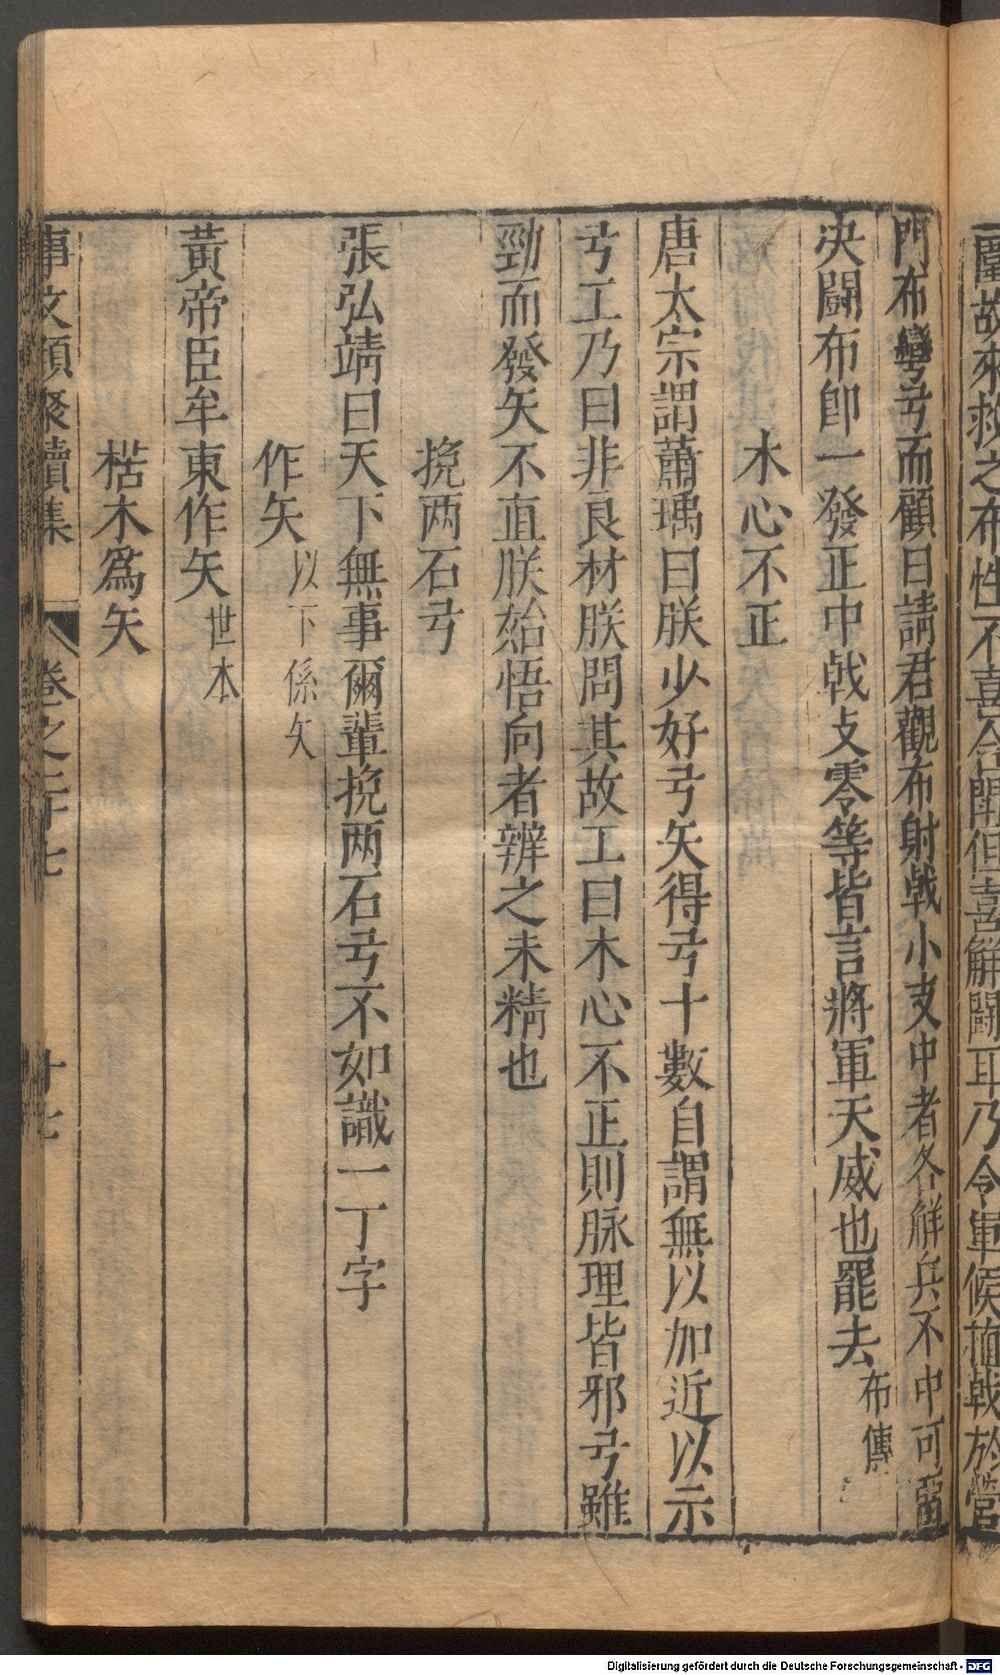 圍故來救之布性不喜合鬬但喜觧闘耳乃令軍候植戟於營
門布彎弓而顧曰請君觀布射戟小支中者各觧兵不中可留
决闘布卽一發正中戟支零等皆言將軍天威也罷去布傳
木心不正
唐太宗謂蕭瑀曰朕少好弓矢得弓十數自謂無以加近以示
弓工乃曰非良材朕問其故工曰木心不正則脉理皆邪弓雖
勁而發矢不直朕始悟向者辨之未精也
挽两石弓
張弘靖曰天下無事爾輩挽两石弓不如識一丁字
作矢以下係矢
黃帝臣牟東作矢世本
楛木爲矢
事文類聚續集 卷之二十七 廿七
Digitalisierung gefördert durch die Deutsche Forschungsgemeinschaft - DFG